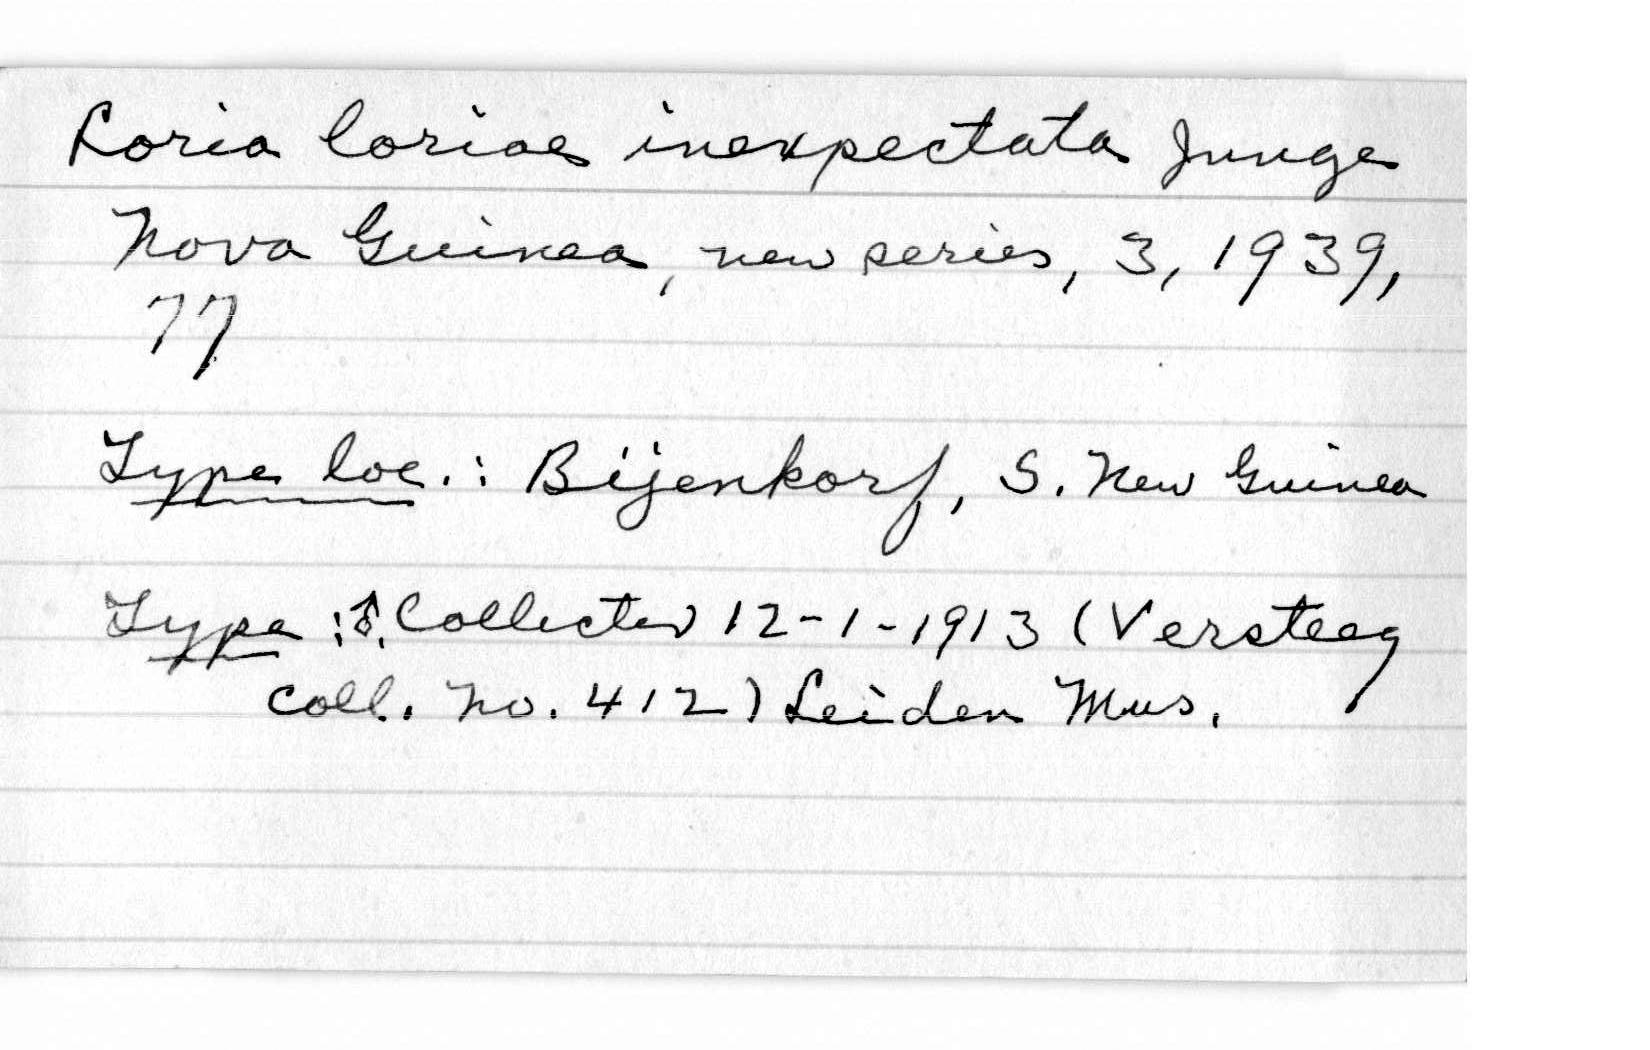 Loria loriae inexpectata Junge
Nova Guinea, new series, 3, 1939,
77
Type loc.: Bijenkorf, S. New Guinea
Type :♂. Collected 12-1-1913 (Versteeg
coll. no. 412) Leiden Mus.